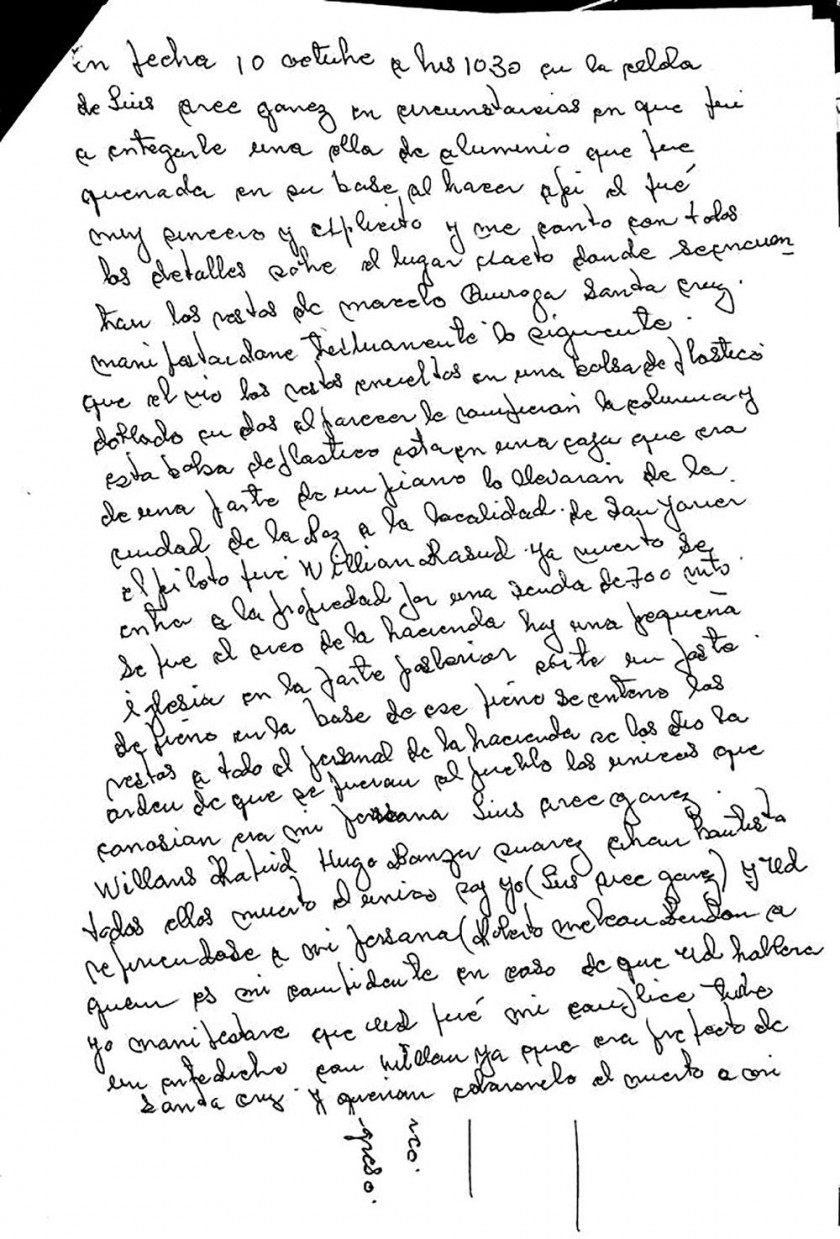 En fecha 10 octubre a hrs 1030 en la celda
de Luis arce gomez en circunstancias en que fui
a entegarle una olla de aluminio que fue
quemada en su base al hacer api el fué
muy sincero y explicito y me conto con todos
los detalles sobre el lugar exacto donde sencuen
tran los restos de marcelo Quiroga Santa cruz.
manifestandome textualmente lo siguiente.
que el vio los restos envueltos en una bolsa de plastico
doblado en dos al parecer le rompieron la columna y
esta bolsa de plastico esta en una caja que era
de una parte de un piano lo llevaron de la
ciudad de la Paz a la localidad de San Yavier
el piloto fué Willian Kasud ya muerto se
entra a la propiedad por una senda de 700 mto.
se fue el arco de la hacienda hay una pequeña
iglesia en la parte posterior existe un poste
de fierro en la base de ese fierro se enterro los
restos a todo el personal de la hacienda se les dio la
orden de que se fueran al pueblo los unicos que
conosian era mi persona Luis arce gomez
Willans Hugo Banzer suarez Bautista
todos ellos muerto el unico soy yo (Luis arce gomez) y Ud
refiriendose a mi persona (Roberto melean Rendon a
quien es mi confidente en caso de que Ud hablara
yo manifestare que Ud fué mi complice tube
un entedicho con willian ya que era prefecto de
Santa cruz. y querian cobrarmelo el muerto a mi